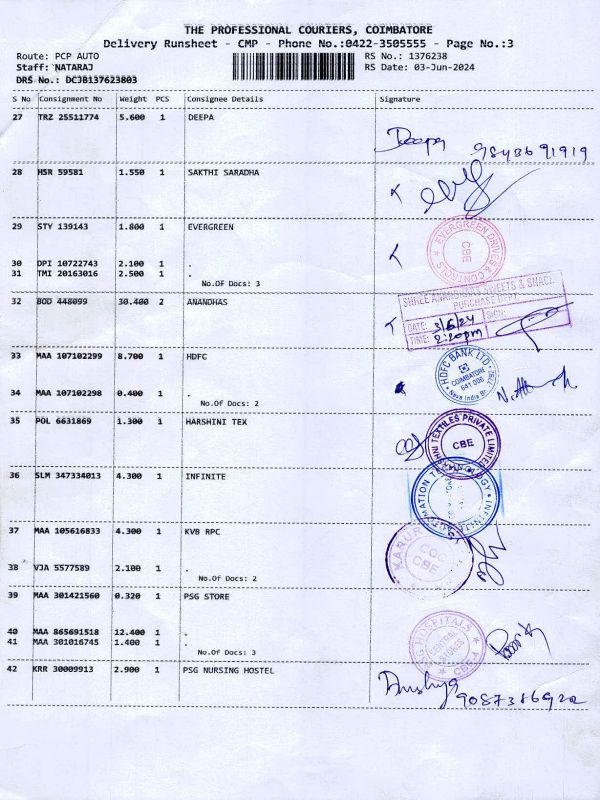 THE PROFESSIONAL COURIERS, COIMBATORE
Delivery Runsheet - CMP - Phone No.:0422-3505555 - Page No.:3
Route: PCP AUTO RS No.: 1376238
Staff: NATARAJ RS Date: 03-Jun-2024
DRS No.: DCJB137623803
S No Consignment No Weight PCS Consignee Details Signature
27 TRZ 25511774 5.600 1 DEEPA
Deepa 9843691919
28 HSR 59581 1.550 1 SAKTHI SARADHA
29 STY 139143 1.800 1 EVERGREEN
EVERGREEN DRIVES & CONTROLS
CBE
30 DPI 10722743 2.100 1 .
31 TMI 20163016 2.500 1 .
No.Of Docs: 3
32 BOD 448099 30.400 2 ANANDHAS
SHREE ANANDHAAS SWEETS & SNACKS
PURCHASE DEPT.
DATE: 3/6/24 SIGN:
TIME: 2:20pm
33 MAA 107102299 8.700 1 HDFC
HDFC BANK LTD
COIMBATORE
641 006
Nava India Br.
34 MAA 107102298 0.400 1 .
No.Of Docs: 2
35 POL 6631869 1.300 1 HARSHINI TEX
TEXTILES PRIVATE LIMITED
CBE
36 SLM 347334013 4.300 1 INFINITE
37 MAA 105616833 4.300 1 KVB RPC
CBE
38 VJA 5577589 2.100 1 .
No.Of Docs: 2
39 MAA 301421560 0.320 1 PSG STORE
HOSPITALS
CENTRAL
STORES
40 MAA 865691518 12.400 1 .
41 MAA 301016745 1.400 1 .
No.Of Docs: 3
42 KRR 30009913 2.900 1 PSG NURSING HOSTEL
9087386922